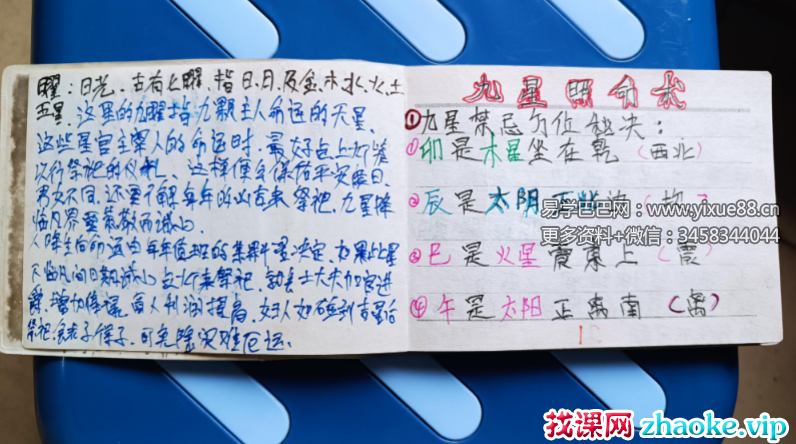 曜：日光，古有七曜，指日、月、及金、木、水、火、土
五星，这里的九曜指九颗主人命运的天星，
这些星官主宰人的命运时，最好点上九盏
以行祭祀的仪礼，这样便会保佑平安
男女不同，还要了解每年的吉凶来祭祀，九星降
临凡界要恭敬而诚心
人降生后命运由每年值班的星来决定，如果七星
下临凡间日期诚心点灯来祭祀，士大夫加官进
爵，增加俸禄，商人利润提高，妇人如碰到吉星后
祭祀，可免除灾难厄运。
九星照命术
①九星禁忌方位秘决：
①卯是木星坐在乾（西北）
②辰是太阴
③巳是火星震東上（震）
④午是太阳正离南（离）
易学巴巴网：www.yixue88.cn
更多资料+微信：3458344044
找课网 zhaoke.vip